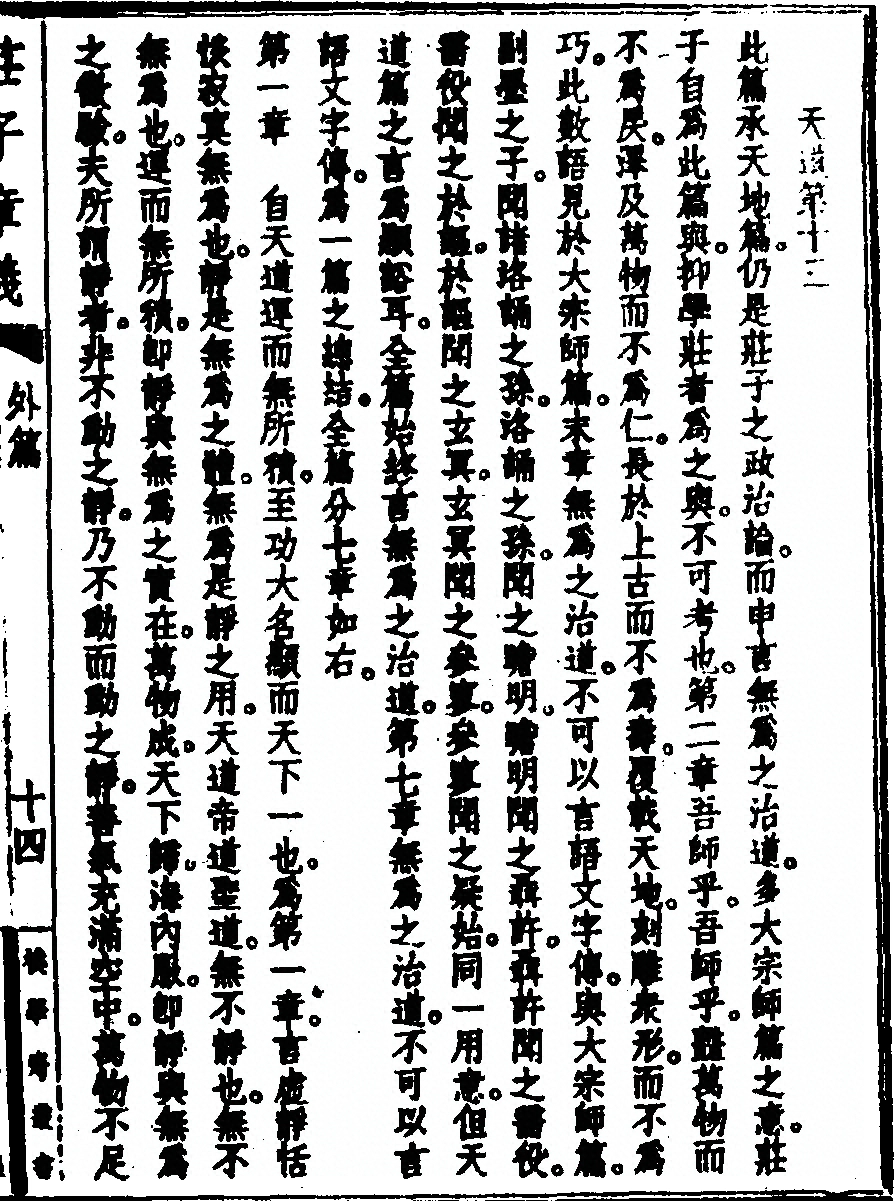 天道第十三
此篇承天地篇。仍是莊子之政治論。而申言無為之治道。多大宗師篇之意。莊
子自為此篇與。抑學莊者為之與。不可考也。第二章吾師乎。吾師乎。䪠萬物而
不為戾。澤及萬物而不為仁。長於上古而不為壽。覆載天地。刻雕衆形。而不為
巧。此數語見於大宗師篇。末章無為之治道。不可以言語文字傳。與大宗師篇。
副墨之子。聞諸洛誦之孫。洛誦之孫。聞之瞻明。瞻明聞之聶許。聶許聞之需役。
需役聞之於謳。於謳聞之玄冥。玄冥聞之參寥。參寥聞之疑始。同一用意。但天
道篇之言為顯豁耳。全篇始終言無為之治道。第七章無為之治道。不可以言
語文字傳。為一篇之總結。全篇分七章如右。
第一章　自天道運而無所積。至功大名顯而天下一也。為第一章。言虛靜恬
惔寂寞無為也。靜是無為之體。無為是靜之用。天道帝道聖道。無不靜也。無不
無為也。運而無所積。卽靜與無為之實在。萬物成。天下歸。海內服。卽靜與無為
之徵驗。夫所謂靜者。非不動之靜。乃不動而動之靜。善氣充滿空中。萬物不足
莊子章義
外篇
十四
樸學齋叢書